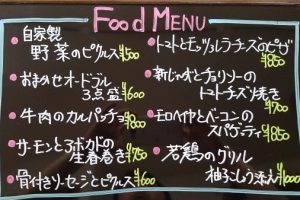 Food MENU
自家製
野菜のピクルス ¥500
おまかせオードブル
3点盛 ¥600
牛肉のカルパッチョ ¥800
サーモンとアボカドの
生春巻き ¥750
骨付きソーセージとピクルス ¥600
トマトとモッツァレラチーズのピザ
¥850
新じゃがとチョリソーの
トマトチーズ焼き
¥700
モロヘイヤとベーコンの
スパゲッティ ¥850
若鶏のグリル
柚子こしょう添え ¥1000